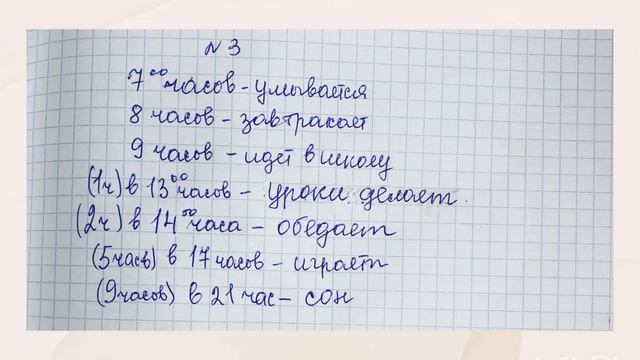 N 3
7⁰⁰ часов - умывается
8 часов - завтракает
9 часов - идет в школу
(1ч) в 13⁰⁰ часов - уроки делает.
(2ч) в 14⁰⁰ часа - обедает
(5 часов) в 17 часов - играет
(9 часов) в 21 час - сон